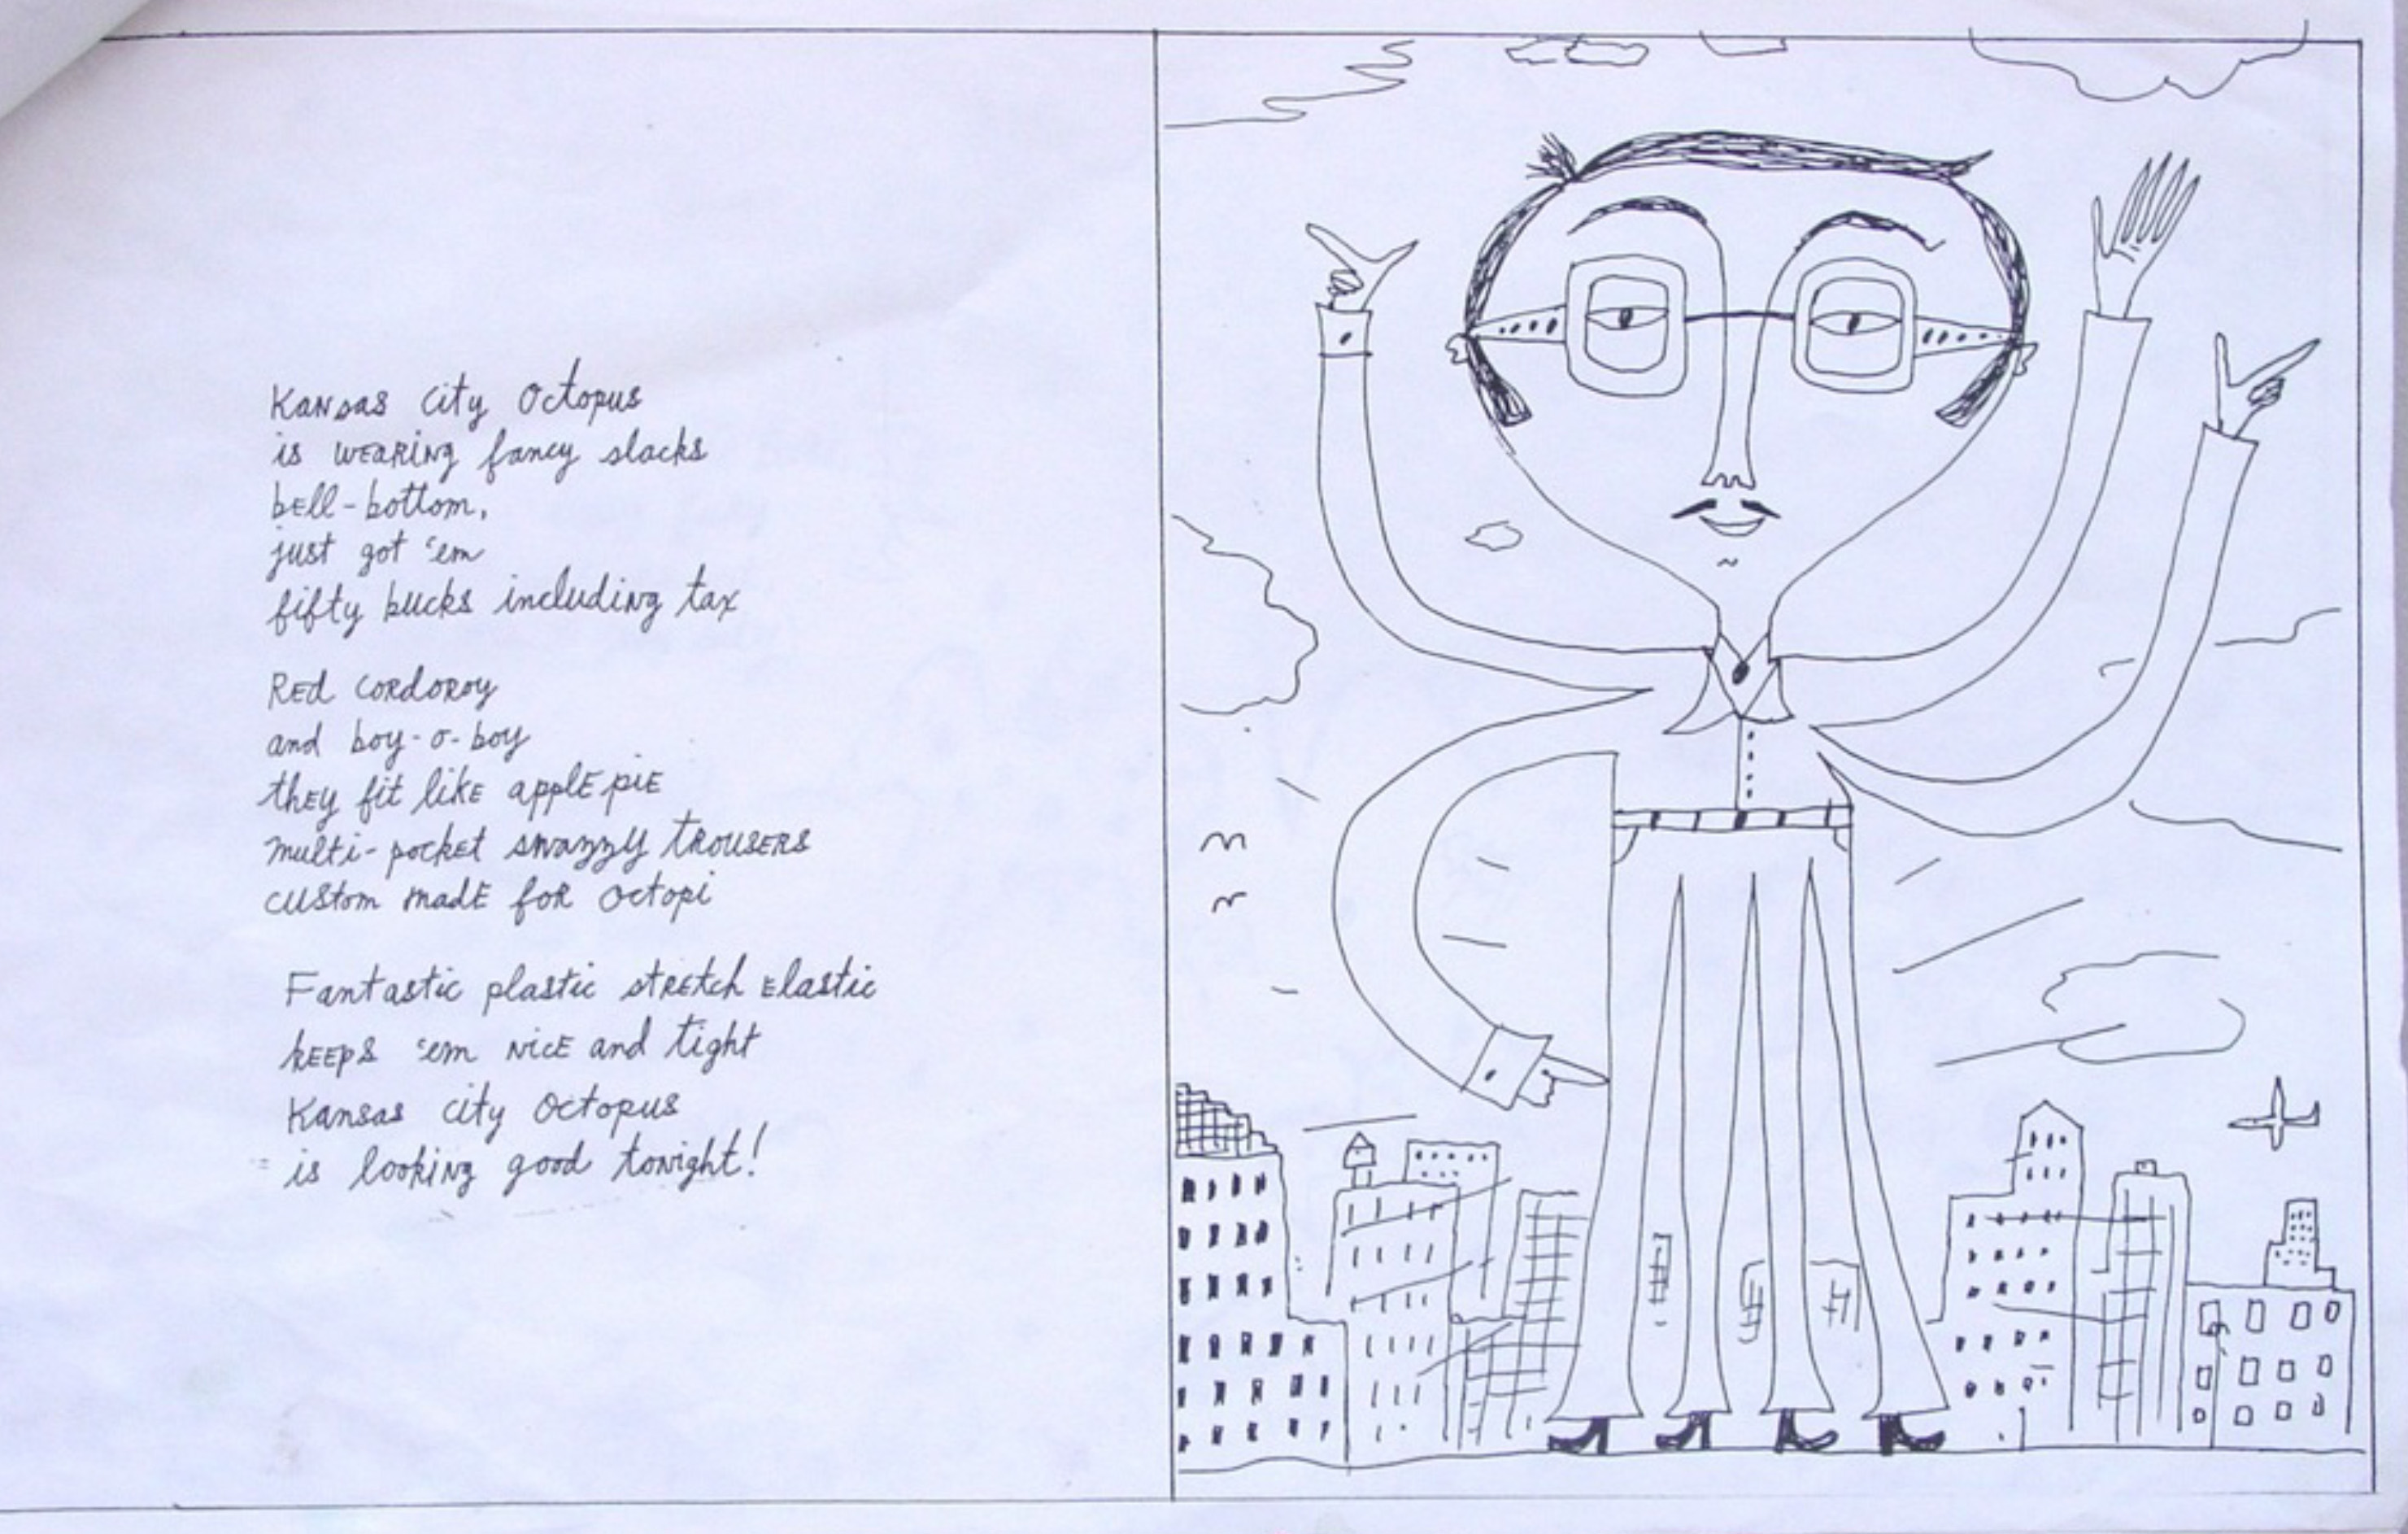 Kansas City Octopus
is wearing fancy slacks
bell-bottom,
just got 'em
fifty bucks including tax
Red cordoroy
and boy-o-boy
they fit like apple pie
multi-pocket snazzy trousers
custom made for octopi
Fantastic plastic stretch elastic
keeps 'em nice and tight
Kansas city Octopus
is looking good tonight!